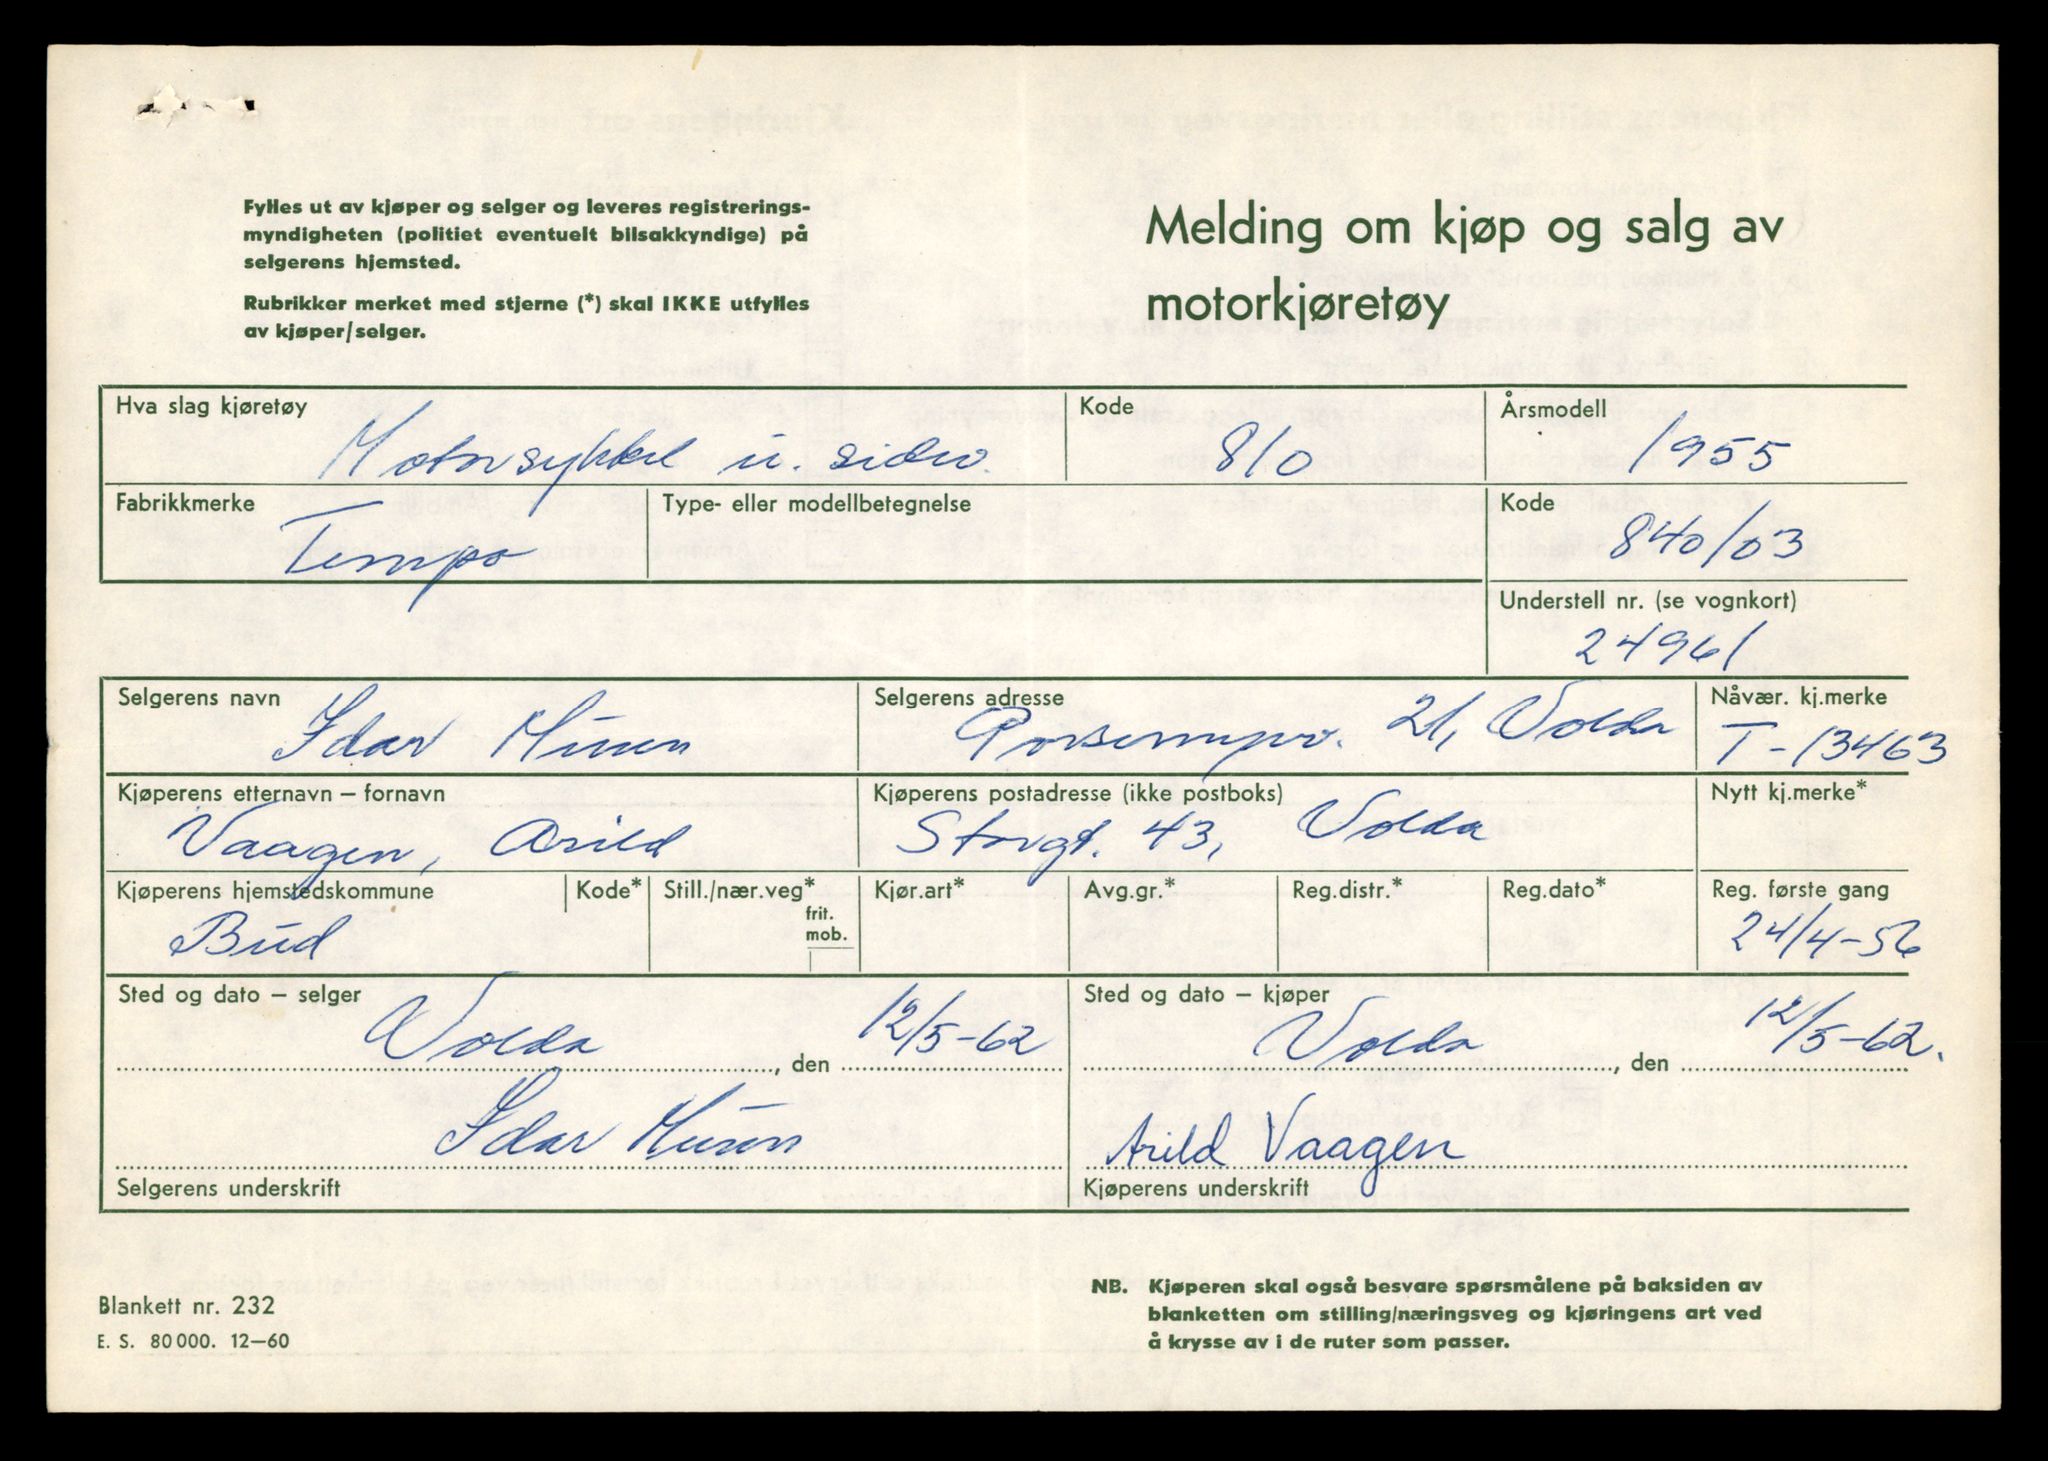 Fylles ut av kjøper og selger og leveres registrerings-
myndigheten (politiet eventuelt bilsakkyndige) på
selgerens hjemsted.
Rubrikker merket med stjerne (*) skal IKKE utfylles
av kjøper/selger.
Melding om kjøp og salg av
motorkjøretøy
Hva slag kjøretøy Kode Årsmodell
Motorsykkel u. sidev. 810 1955
Fabrikkmerke Type- eller modellbetegnelse Kode
Tempo 840/03
Understell nr. (se vognkort)
24961
Selgerens navn Selgerens adresse Nåvær. kj.merke
Idar 21, Volda T-13463
Kjøperens etternavn – fornavn Kjøperens postadresse (ikke postboks) Nytt kj.merke*
Vaagen, Arild Storgt. 43, Volda
Kjøperens hjemstedskommune Kode* Still./nær.veg* Kjør.art* Avg.gr.* Reg.distr.* Reg.dato* Reg. første gang
frit.
mob.
Bud 24/4-56
Sted og dato – selger Sted og dato – kjøper
Volda, den 12/5-62 Volda, den 12/5-62.
Idar Arild Vaagen
Selgerens underskrift Kjøperens underskrift
Blankett nr. 232
E. S. 80 000. 12–60
NB. Kjøperen skal også besvare spørsmålene på baksiden av
blanketten om stilling/næringsveg og kjøringens art ved
å krysse av i de ruter som passer.